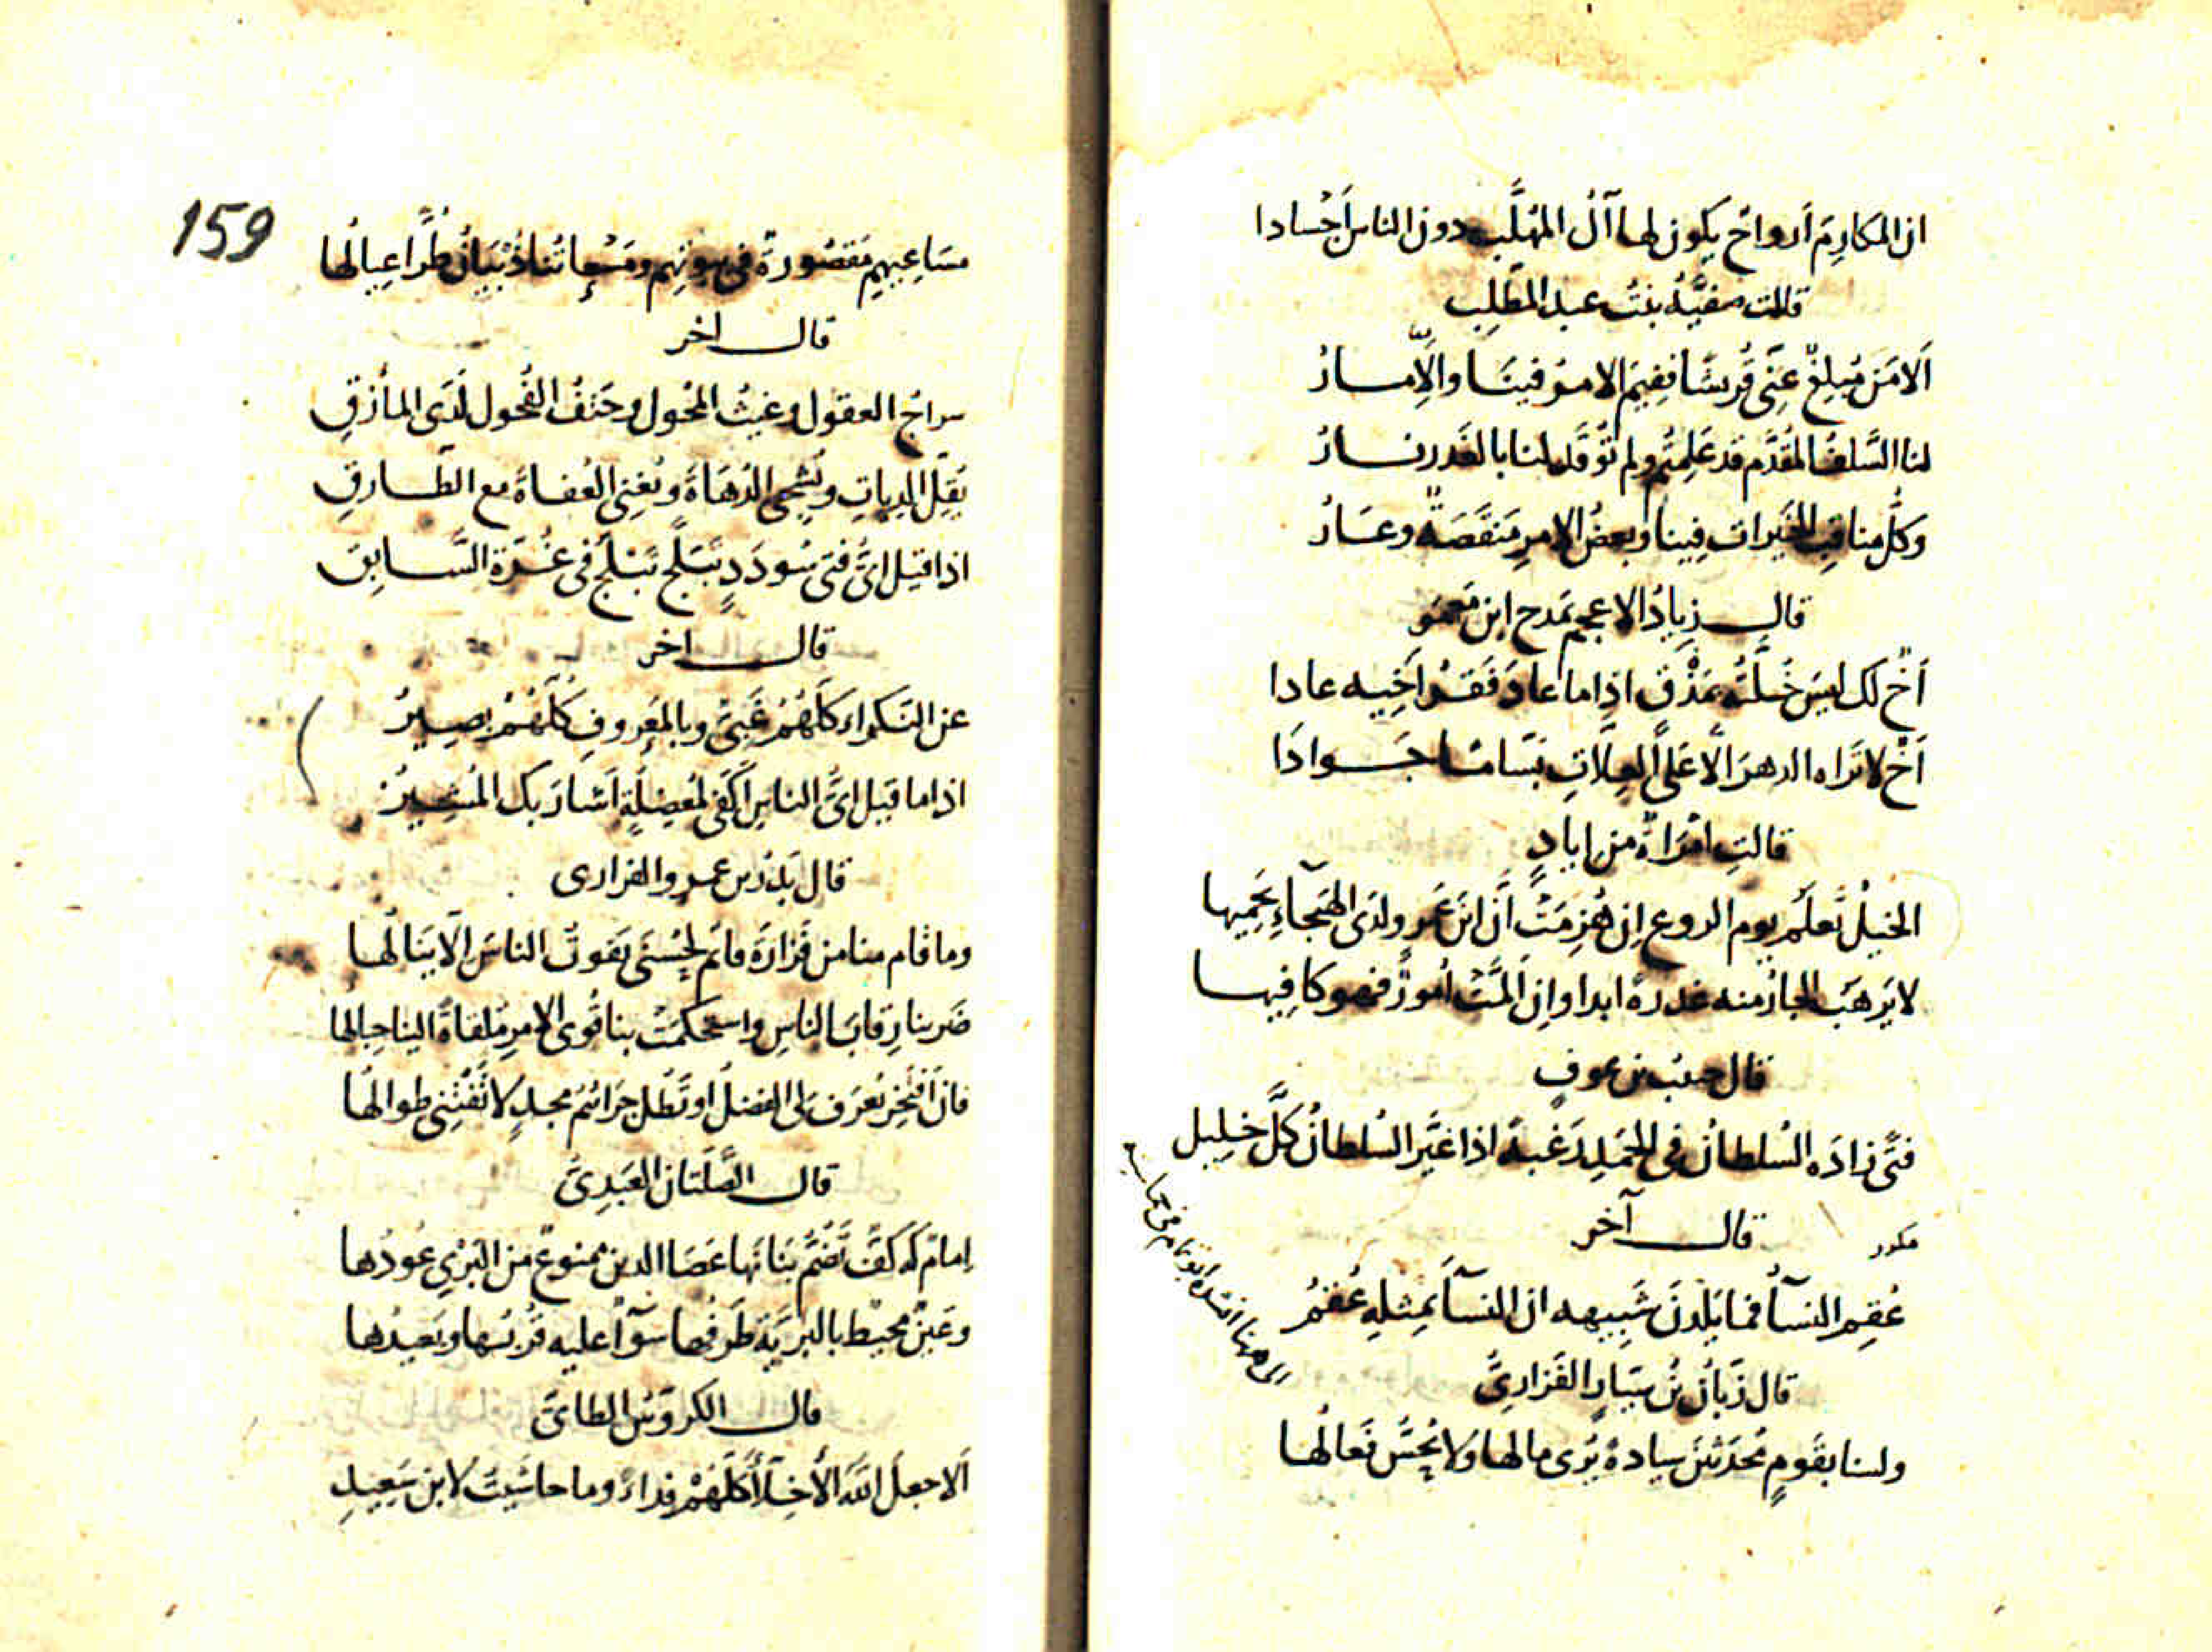 ان المكارمَ أرواحٌ يكون لها آلُ المهلَّب دون الناس أجسادا
قالت صفيّةُ بنتُ عبد المطّلِب
ألا مَن مُبلِغٌ عنّي قُريشًا ففِيمَ الامرُ فينَا والإِمارُ
لنا السَّلفُ المُقدَّم قد عَلِمتُم ولم تُوقَد لنا بالغَدر نارُ
وكلُّ مناقِبِ الخَيرات فِينا وبعضُ الامرِ مَنقَصَةٌ وعارُ
قال زِيادُ الاعجم يمدح ابن مَعمَر
أخٌ لك ليسَ خُلّتُه بمَذْقٍ اذا ما عادَ فَقرُ أخِيه عادا
أخٌ لا تَراه الدهرَ الّا على العِلّاتِ بَسّامًا جَوادَا
قالتِ امرَأةٌ من إيادٍ
الخيلُ تَعلَم يوم الروع إن هُزِمَتْ أنّ ابنَ عَمرٍو لدَى الهَيجاءِ يَحمِيها
لا يَرهَبُ الجارُ منه غدرةً ابدا وإن ألمَّتْ أمورٌ فهو كافِيها
قال حبيب بن عوفٍ
فتًى زادَه السُلطانُ في الحَمدِ رَغبةً اذا غيَّر السُلطانُ كلَّ خليل
مكرر
قال آخر
عُقِم النسآُ فما يَلِدنَ شَبِيهه ان النسآَ بمِثلِهِ عُقمُ
قال زَبّانُ بنُ سَيّارٍ الفَزاريُّ
ولسنا بقَومٍ مُحدَثينَ سيادةً يُرَى مالها ولا يُحَسُّ فَعالُها
159
مسَاعِيهِم مَقصُورةٌ في بيوتهم ومَسْعاتُنا ذُبْيَانُ طُرًّا عِيالُها
قال اخر
سراجُ العقول وغيثُ المحُول وحَتفُ الفُحول لَدَى المأزقِ
يُقِلّ الدِياتِ ويُشجي الدُهاةَ ويُغنِي العُفاةَ مع الطارقِ
اذا قيل ايُّ فتى سُودَدٍ تبلّج تبلّج في غُرَّة السَّابِقِ
قال اخر
عن النَكراء كلُّهُمُ غَبِيٌّ وبالمَعروفِ كلُّهُمُ بصيرُ
اذا ما قيل ايُّ الناسِ أكفَى لمُعضِلةٍ أشارَ بك المُشيرُ
قال بَدْر بن عمرو الفزارى
وما قام منا من فَزارَةَ قائم لحُسنَى يَفوتُ الناسَ الّا يَنالُها
ضَربنا رِقابَ الناسِ واستحكمَتْ بنا قُوى الامرِ مُلقاةً الينا حِبالها
فان أفتخِر يُعرَف لي الفضلُ او تَطُل جَراثيم مجدٍ لا تَفُتْنِي طوالُها
قال الصَّلَتان العَبدِيّ
إمامٌ له كفٌّ تَضُمُّ بَنانُها عَصَا الدين ممنوعٌ من البَرْيِ عُودُها
وعَينٌ محيطٌ بالبريّة طَرفُها سوآءٌ عليه قُربُها وبَعيدُها
قال الكروّس الطائى
ألا جعلَ اللّهُ الأخِلّآءَ كلَّهُمْ فداءً وما حاشَيتَ لابن سَعيدِ